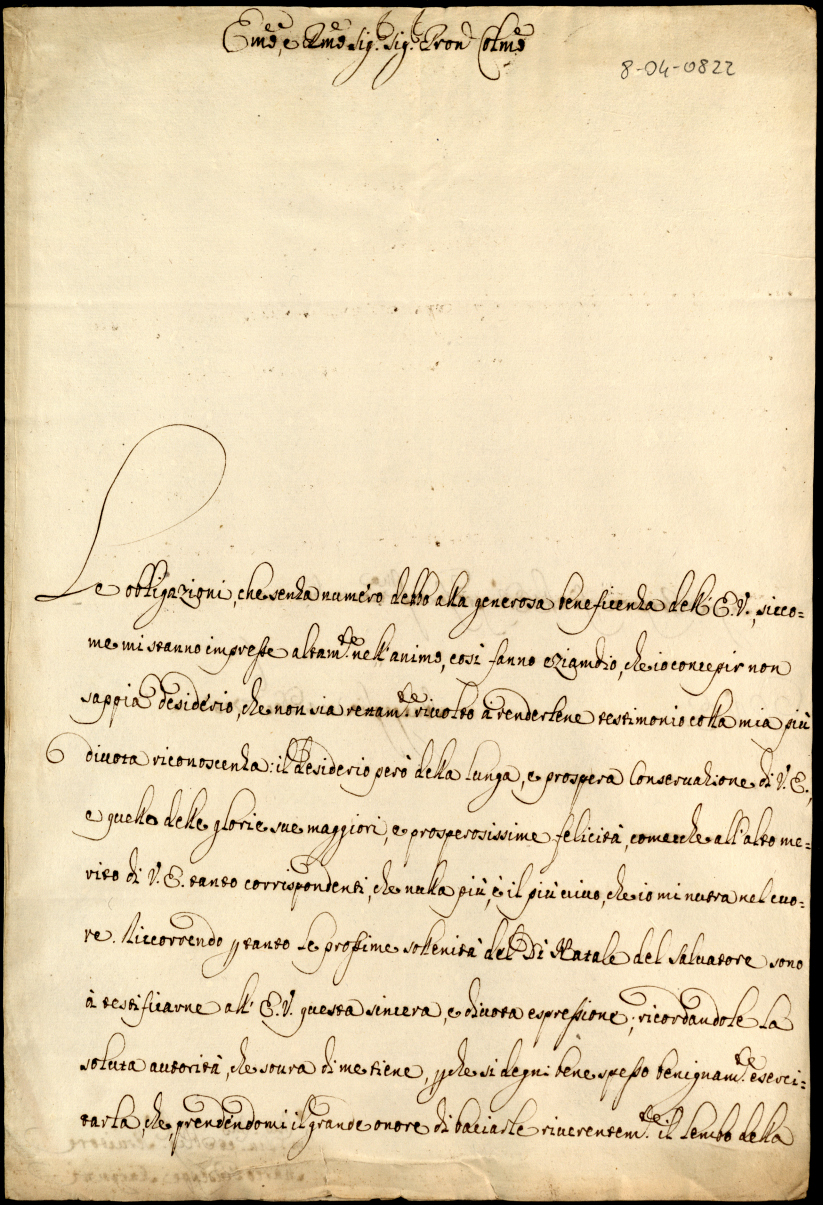 Em̃o, e Rm̃o Sig.r Sig.r Pron Colmo
8-04-0822
Le obbligazioni, che senza numero debbo alla generosa beneficenza dell'E.V., sicco=
me mi stanno impresse altam.te nell'animo, così fanno eziamdio, che io concepir non
sappia desiderio, che non sia renam.te rivolto à renderlene testimonio colla mia più
divota riconoscenza: il desiderio però della lunga, e prospera Conservazione di V.E.,
e quelle delle glorie sue maggiori, e prosperosissime felicità, comecche all'alto me=
rito di V.E. tanto corrispondenti, che nulla più, è il più vivo, che io mi nutra nel cuo=
re. Riccorrendo p tanto le prossime sollenità del Dì Natale del Salvatore sono
à testificarne all'E.V. questa sincera, e divota espressione; ricordandole la
soluta autorità, che sovra di me tiene, p che si degni bene spesso benignam.te eserci=
tarla, che prendendomi il grande onore di baciarle riverentem.te il lembo della